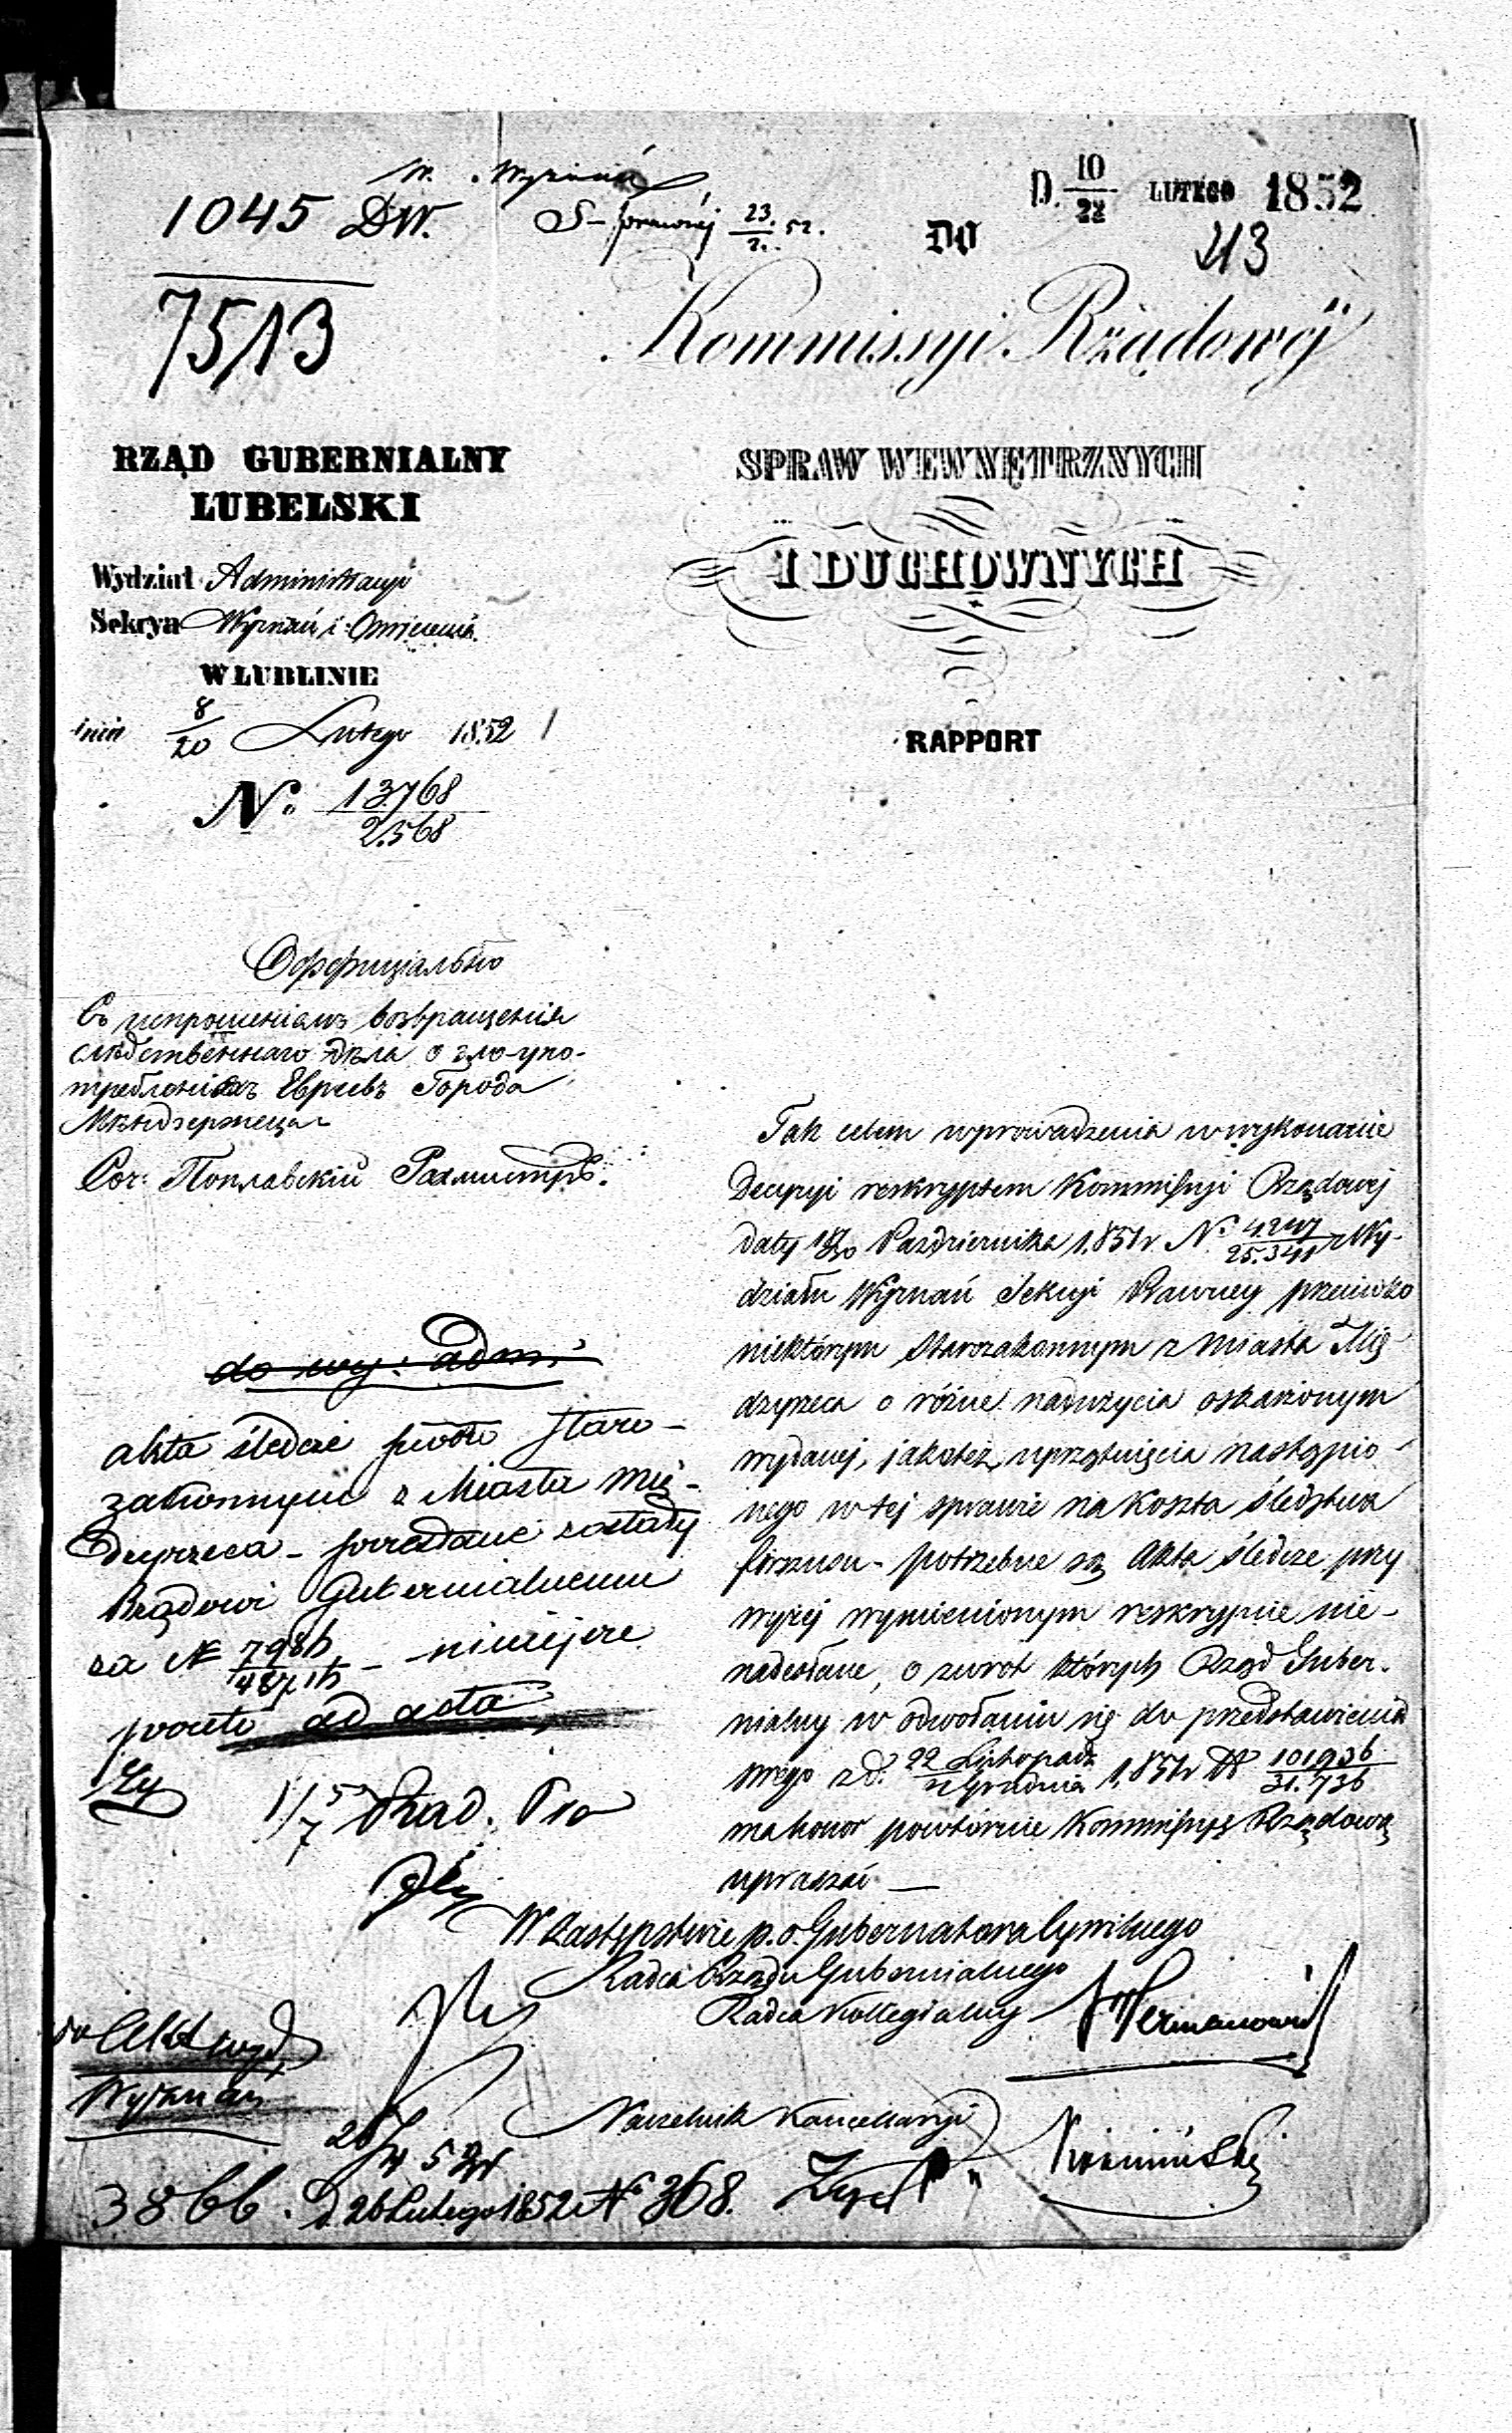 1045 DW.
7513
W. Wyznań
S- prawnéj 23/2. 52.
D. 10/22 LUTEGO 1852
DO
43
Kommissyi Rządowéj
SPRAW WEWNĘTRZNYCH
I DUCHOWNYCH
RAPPORT
RZĄD GUBERNIALNY
LUBELSKI
Wydział Administracyi
Sekcya Wyznań i Oświecenia
W LUBLINIE
dnia 8/20 Lutego 1852
N° 13768/2568
Оффиціально
Съ испрошеніемъ возвращенія
слѣдственнаго дѣла о зло-упо-
требленіяхъ Евреевъ Города
Мендзержеца
Соч: Поплавскій
do wy: adm:
akta śledcze staro-
zakonnym z Miasta Mię-
dzyrzeca - zostały
Rządowi Gubernialnemu
za N - niniejsze
ad acta
Tak celem wprowadzenia w wykonanie
Decyzyi reskryptem Kommissyi Rządowej
daty 18/30 Października 1851 r N° Wy-
działu Wyznań Sekcyi Prawney przeciwko
niektórym Starozakonnym z Miasta Mię
dzyrzeca o różne nadużycia oskarżonym
wydanej, jakoteż uprzątnięcia nastąpio-
nego w tej sprawie na koszta śledztwa
forszusu - potrzebne są Akta śledcze przy
wyżej wymienionym reskrypcie nie-
nadesłane, o zwrot których Rząd Guber-
nialny w odwołaniu się do przedstawienia
swego z d. 22 Listopada/Grudnia 1851 r N 101936/31.736
ma honor powtórnie Kommissyę Rządową
upraszać —
W Zastępstwie p. o. Gubernatora Cywilnego
Radca Rządu Gubernialnego
Radca Kollegialny
Naczelnik Kancellaryi
do Akt wyd
Wyznań
3866. D. 26 Lutego 1852 N° 368.